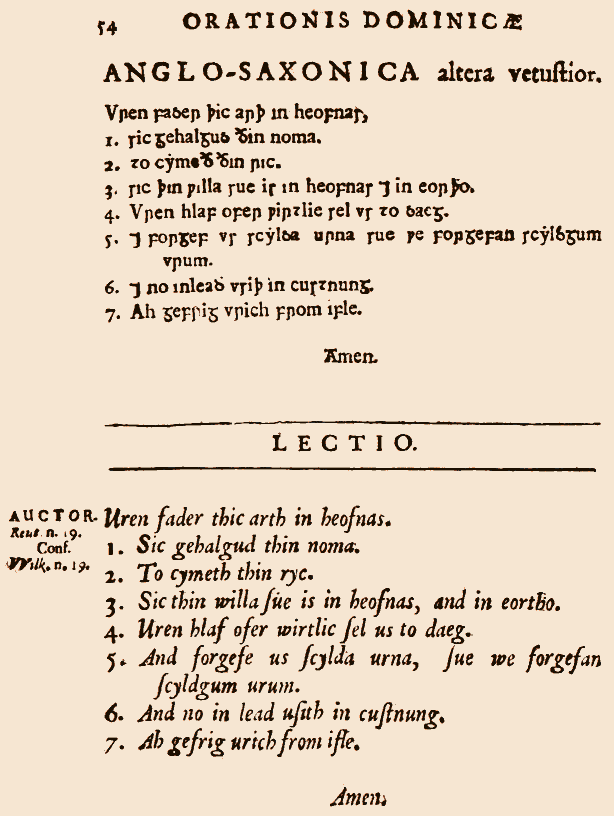 54 ORATIONIS DOMINICÆ
ANGLO-SAXONICA altera vetuſtior.
Vren fader þic arþ in heofnas,
1. sic gehalgud ðin noma.
2. to cẏmeð ðin ric.
3. sic þin ƿilla sue is in heofnas ⁊ in eorþo.
4. Vren hlaf ofer ƿirtlie sel vs to daeg.
5. ⁊ forgef vs scẏlda urna sue ƿe forgefan scẏldgum
vrum.
6. ⁊ no inlead vsiþ in custnung.
7. Ah gefrig vrich from ifle.
Amen.
LECTIO.
AUCTOR.
Reut. n. 19.
Conf.
Wilk. n. 19.
Uren fader thic arth in heofnas.
1. Sic gehalgud thin noma.
2. To cymeth thin ryc.
3. Sic thin willa ſue is in heofnas, and in eortho.
4. Uren hlaf ofer wirtlic ſel us to daeg.
5. And forgefe us ſcylda urna, ſue we forgefan
ſcyldgum urum.
6. And no in lead uſith in cuſtnung.
7. Ah gefrig urich from ifle.
Amen.